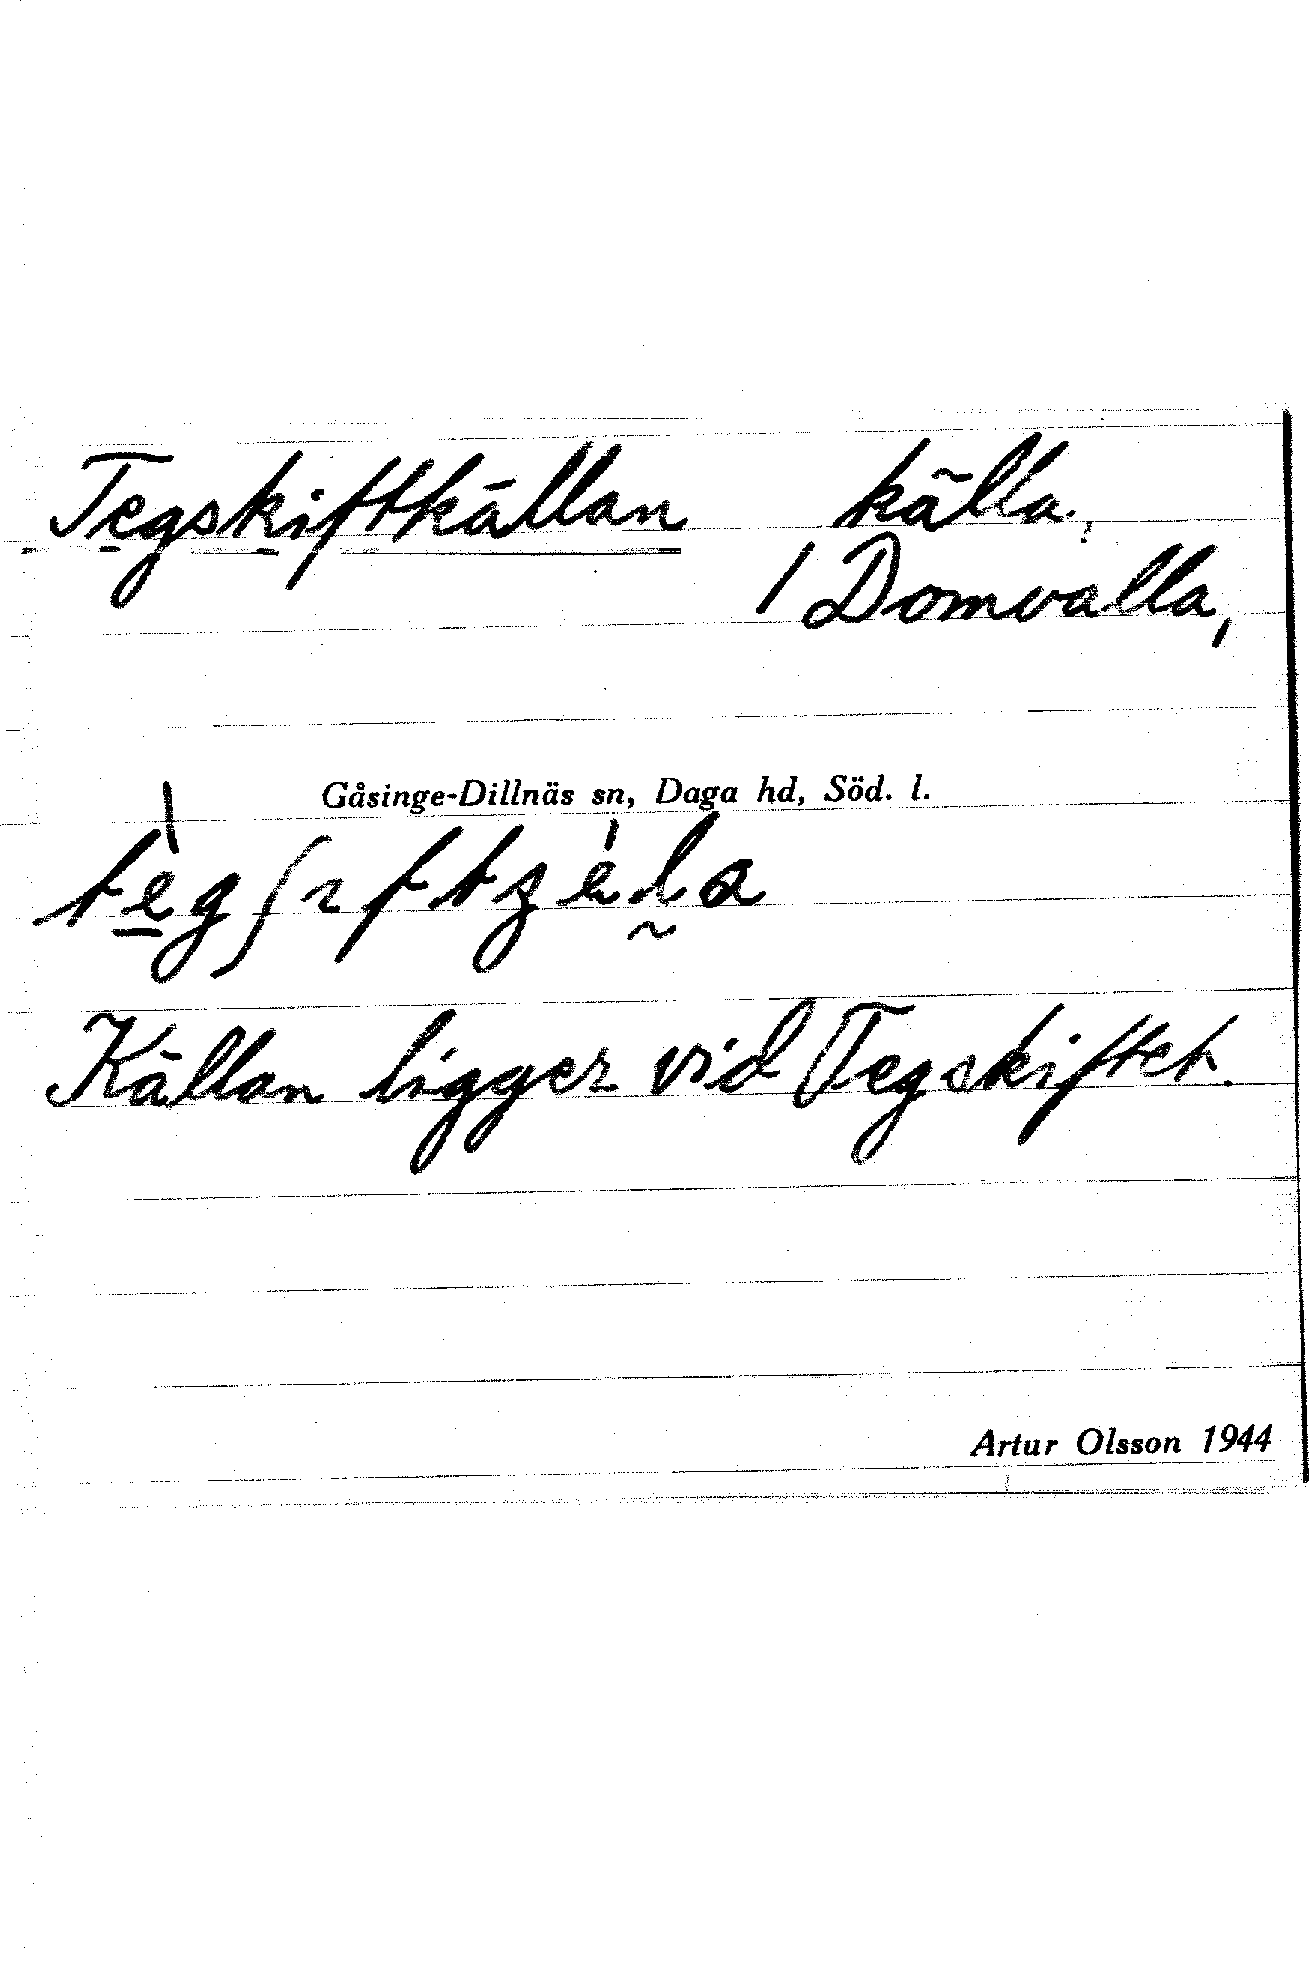 Tegskiftkällan källa,
/ Domvalla,
Gåsinge-Dillnäs sn, Daga hd, Söd. l.
Källan ligger vid Tegskiftet.
Artur Olsson 1944